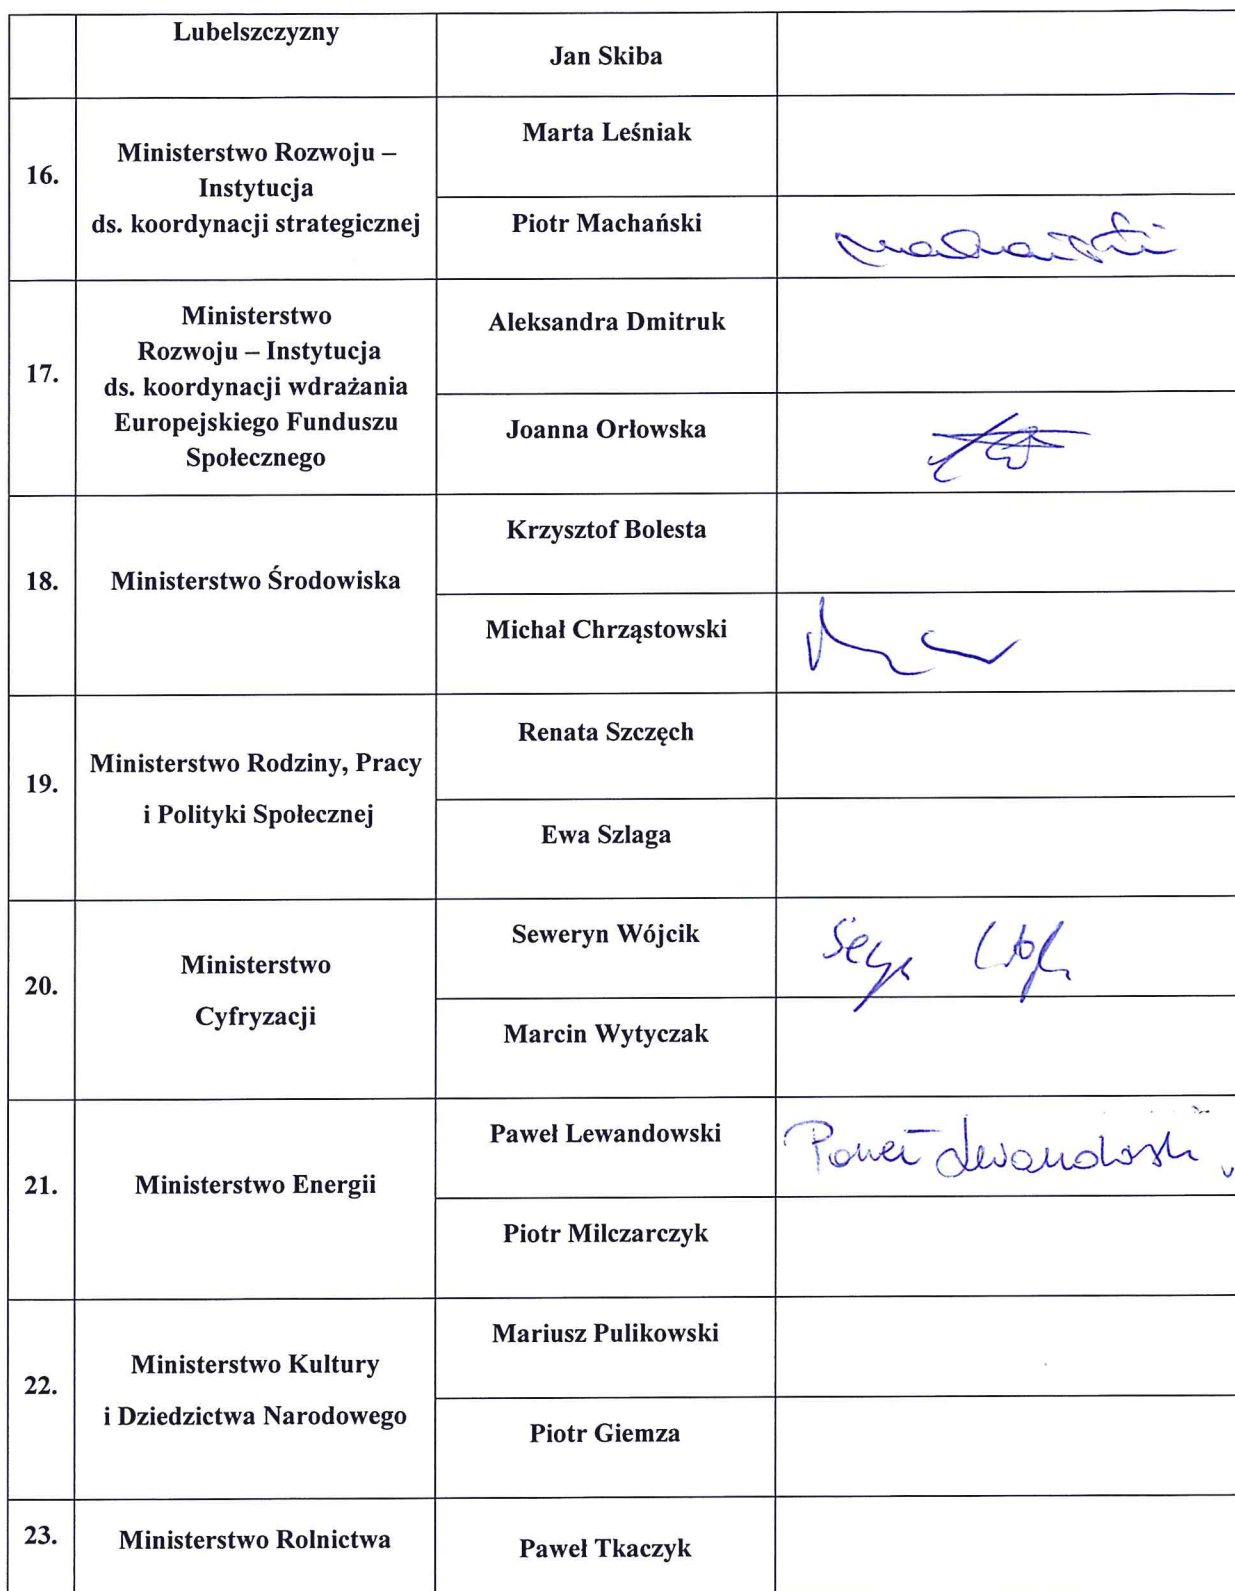 Lubelszczyzny
Jan Skiba
16.
Ministerstwo Rozwoju –
Instytucja
ds. koordynacji strategicznej
Marta Leśniak
Piotr Machański
17.
Ministerstwo
Rozwoju – Instytucja
ds. koordynacji wdrażania
Europejskiego Funduszu
Społecznego
Aleksandra Dmitruk
Joanna Orłowska
18.
Ministerstwo Środowiska
Krzysztof Bolesta
Michał Chrząstowski
19.
Ministerstwo Rodziny, Pracy
i Polityki Społecznej
Renata Szczęch
Ewa Szlaga
20.
Ministerstwo
Cyfryzacji
Seweryn Wójcik
Marcin Wytyczak
21.
Ministerstwo Energii
Paweł Lewandowski
Paweł Lewandowski
Piotr Milczarczyk
22.
Ministerstwo Kultury
i Dziedzictwa Narodowego
Mariusz Pulikowski
Piotr Giemza
23.
Ministerstwo Rolnictwa
Paweł Tkaczyk